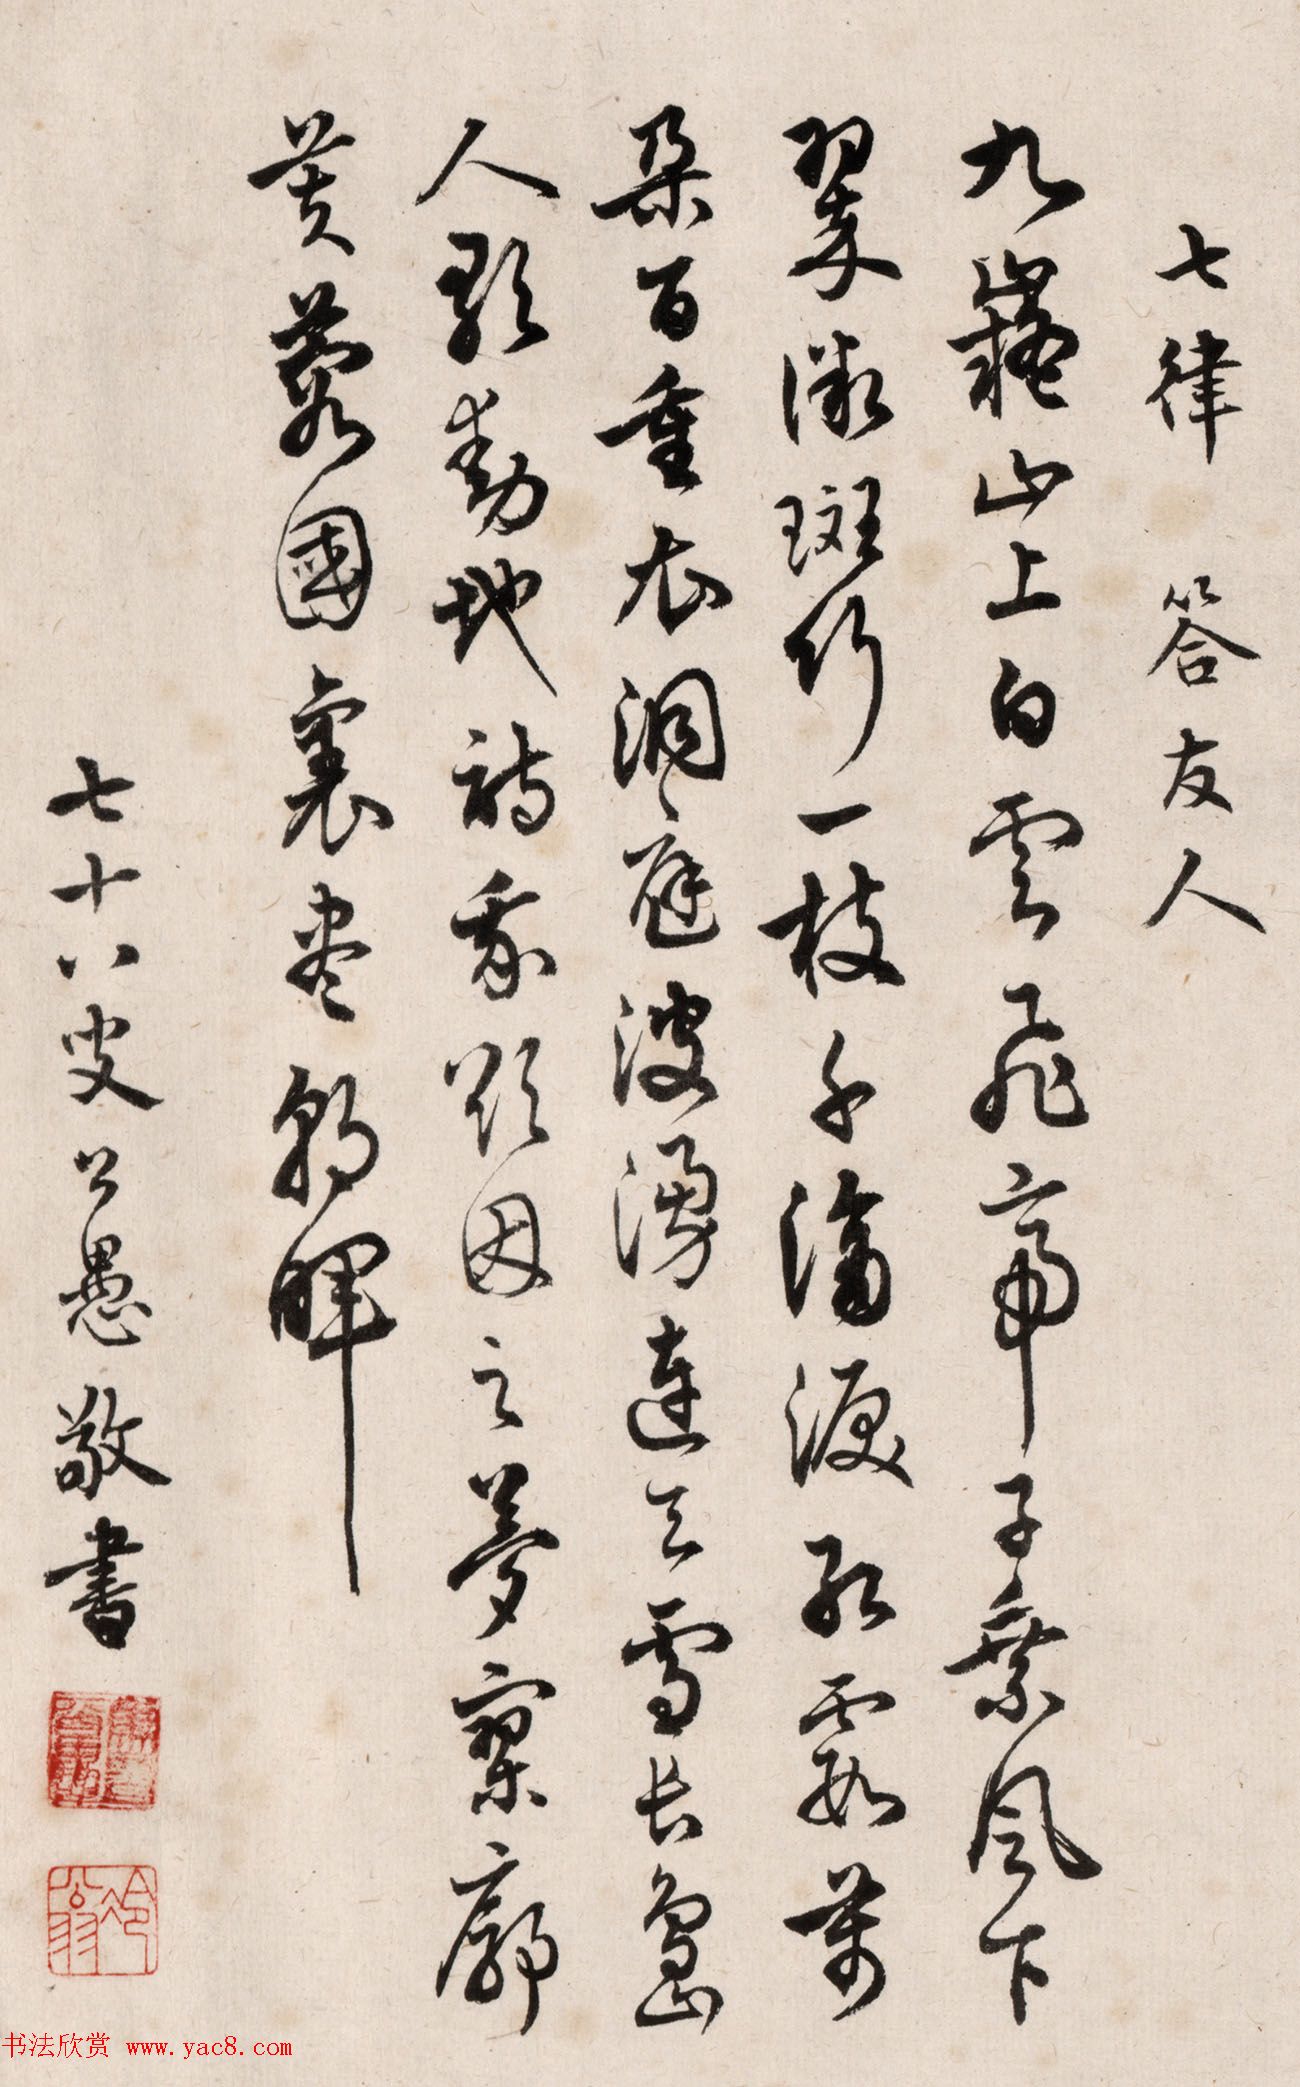 七律 答友人
九嶷山上白雲飛帝子乘風下
翠微斑竹一枝千滴淚紅霞萬
朵百重衣洞庭波湧連天雪長島
人歌動地詩我欲因之夢寥廓
芙蓉國裏盡朝暉
七十八叟公愚敬書
冷翁
书法欣赏 www.yac8.com